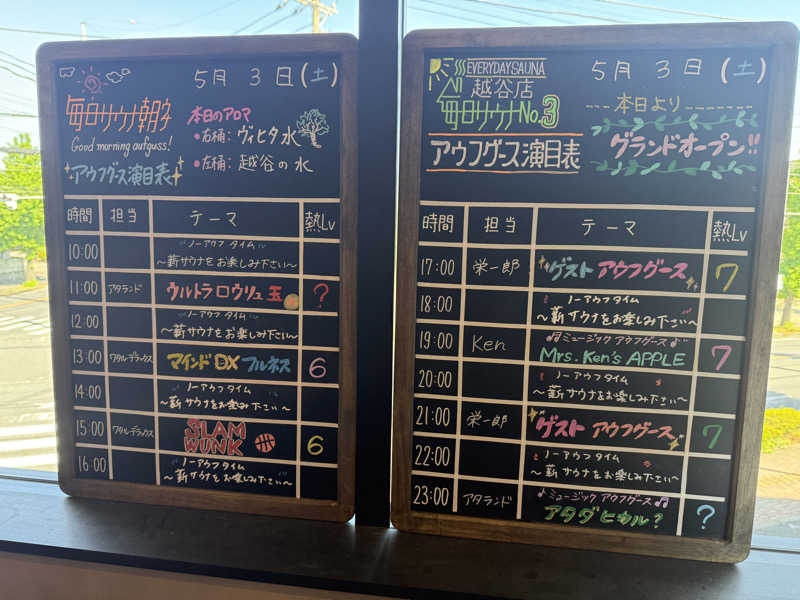 5月 3日(土)
毎日サウナ朝
Good morning aufguss!
アウフグース演目表
本日のアロマ
・右桶: ヴィヒタ水
・左桶: 越谷の水
時間 担当 テーマ 熱Lv
10:00 ノーアウフタイム
～薪サウナをお楽しみ下さい～
11:00 アタランド ウルトラロウリュ玉 ?
12:00 ノーアウフタイム
～薪サウナをお楽しみ下さい～
13:00 ワタル・デラックス マインドDXフルネス 6
14:00 ノーアウフタイム
～薪サウナをお楽しみ下さい～
15:00 ワタル・デラックス SLAM WUNK 6
16:00 ノーアウフタイム
～薪サウナをお楽しみ下さい～
EVERYDAY SAUNA
越谷店
毎日サウナNo.3
アウフグース演目表
5月 3日(土)
本日より
グランドオープン!!
時間 担当 テーマ 熱Lv
17:00 栄一郎 ゲスト アウフグース 7
18:00 ノーアウフタイム
～薪サウナをお楽しみ下さい～
19:00 Ken ミュージック アウフグース
Mrs. Ken's APPLE 7
20:00 ノーアウフタイム
～薪サウナをお楽しみ下さい～
21:00 栄一郎 ゲスト アウフグース 7
22:00 ノーアウフタイム
～薪サウナをお楽しみ下さい～
23:00 アタランド ♪ミュージック アウフグース♫
アタデヒカル? ?